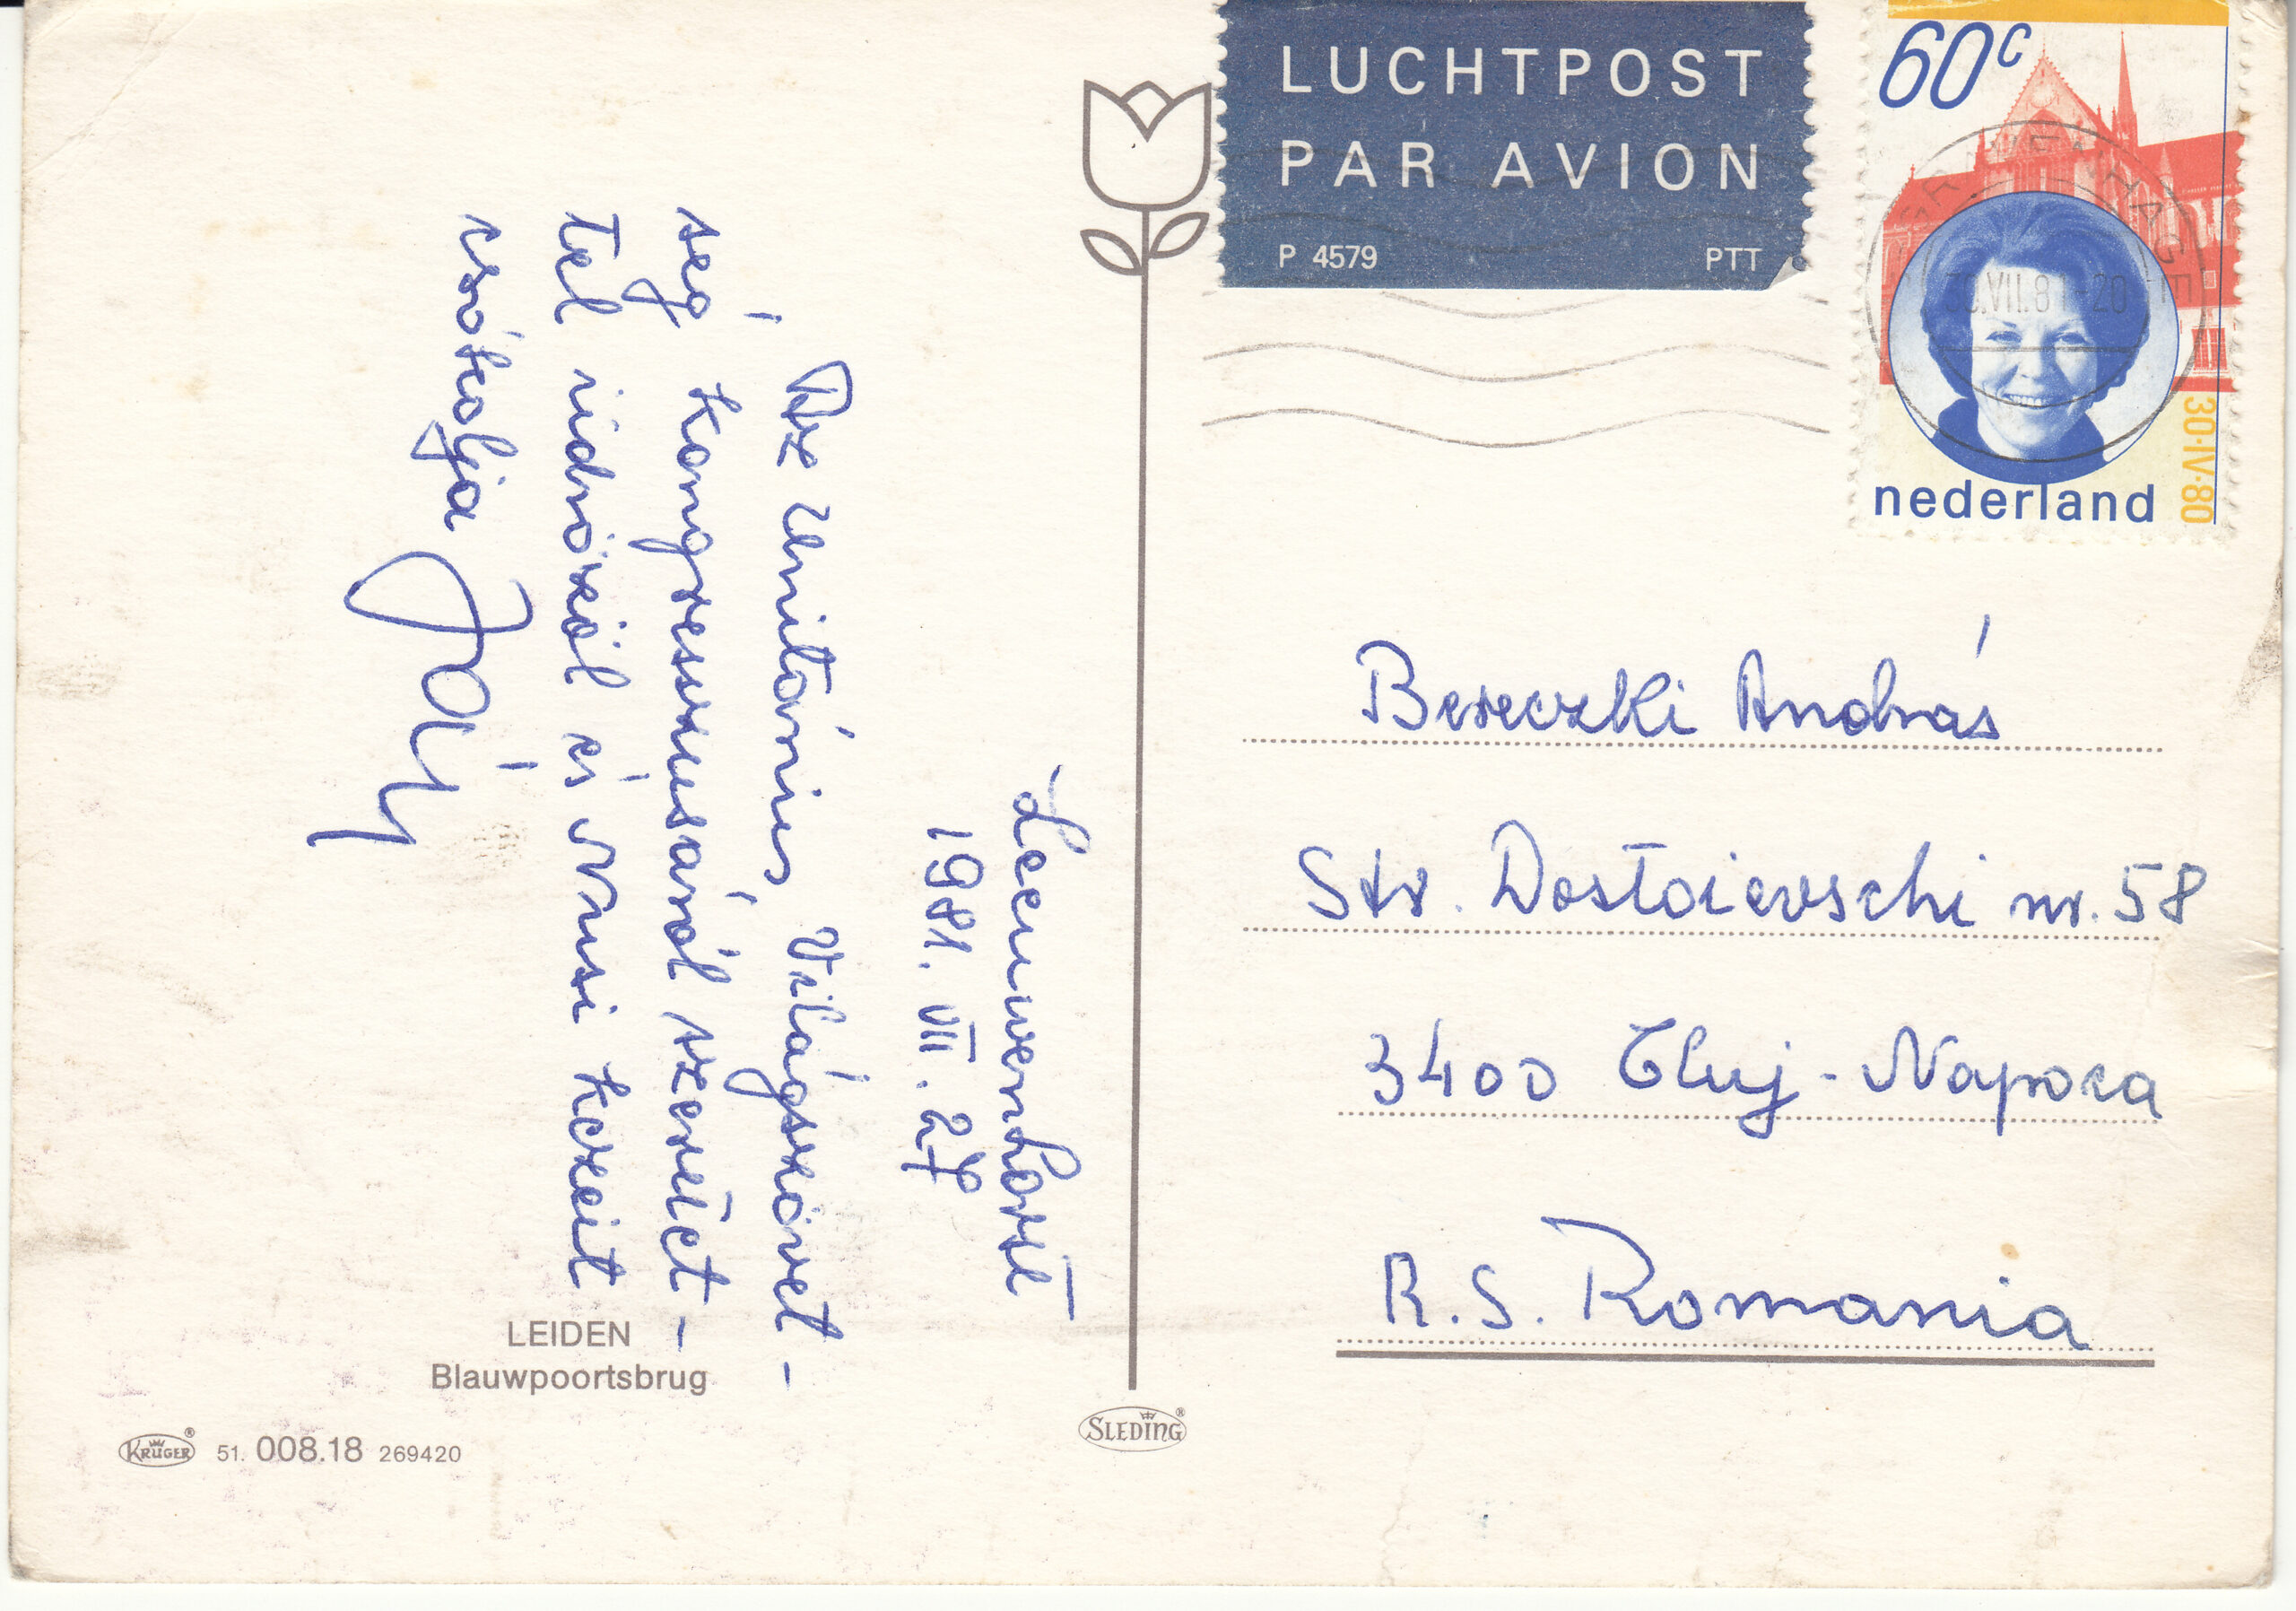 LUCHTPOST
PAR AVION
P 4579 PTT
60c
nederland
30·IV·80
'S-GRAVENHAGE
Leeuwenhorst
1981. VII. 27
Az Unitárius Világszövet-
ség Kongresszusáról szeretet-
tel üdvözöl és Nusi kezeit
csókolja
Bereczki András
Str. Dostoievschi nr. 58
3400 Cluj-Napoca
R.S. Romania
LEIDEN
Blauwpoortsbrug
KRÜGER® 51. 008.18 269420
SLEDING®